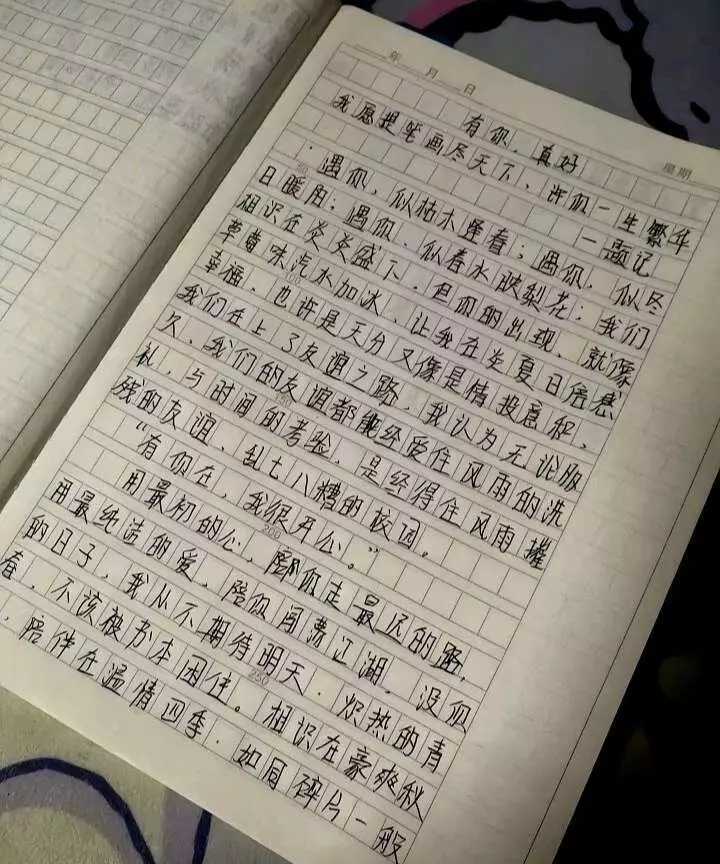 年 月 日
星期
有你，真好
我愿提笔画尽天下、许你一生繁华
一题记
遇你，似枯木逢春；遇你，似冬
日暖阳；遇你、似春水映梨花；我们
相识在炎炎盛下，但你的出现、就像
草莓味汽水加冰、让我在炎夏日倍感
幸福，也许是天分又像是情投意和、
我们在上了友谊之路，我认为无论版
久、我们的友谊都能经受住风雨的洗
礼，与时间的考验，是经得住风雨摧
残的友谊、乱七八糟的校园。
“有你在，我很开心。”
200
用最初的心，陪你走最远的路，
用最纯洁的爱，陪你闯荡江湖，没你
的日子，我从不期待明天．炽热的青
春，不该被书本困住。相识在豪爽秋
250
．陪伴在温情四季．如同碎片一般